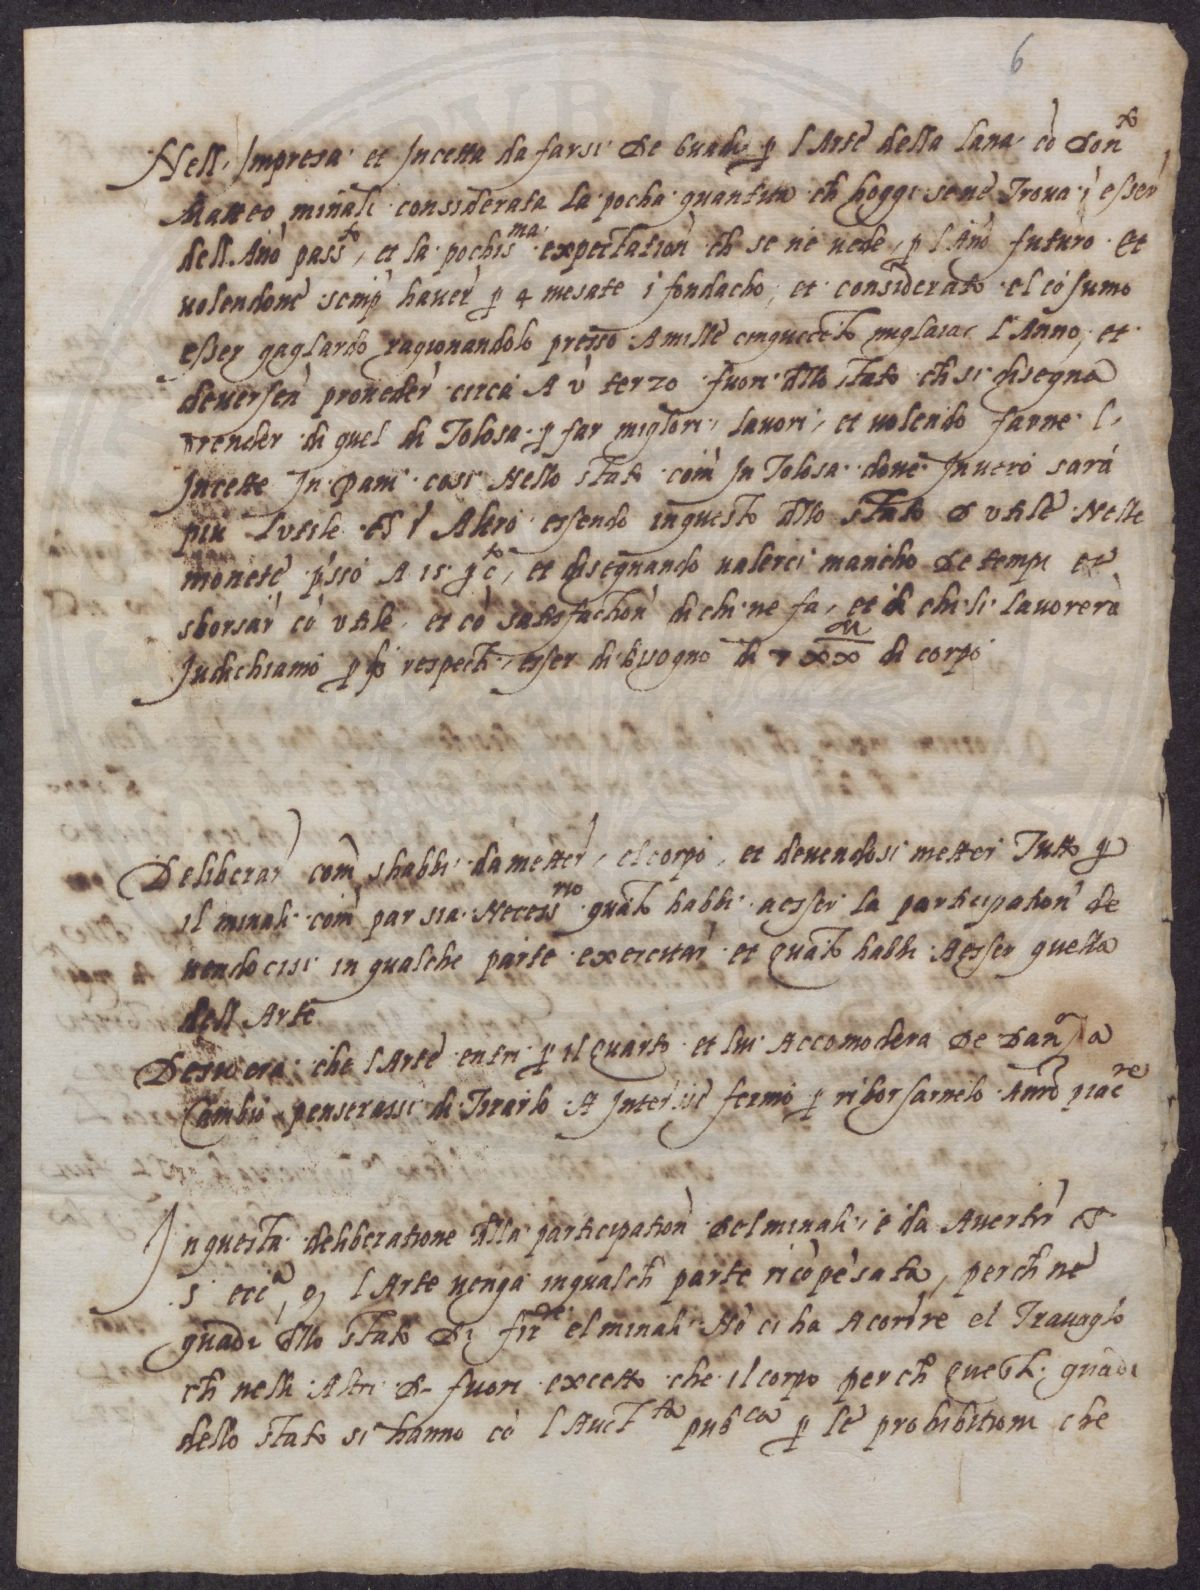 6
Nell Impresa et Incetta da farsi de Guadi p l Arte della lana cō Don^to
Matteo minali considerata la pocha quantita ch hoggi se ne Trova ī esser
dell Año pass^to, et la pochis^ma expectation ch se ne vede, p l Año futuro et
volendone semp haver p 4 mesate ī fondacho, et considerato el cōsumo
esser gagliardo ragionandolo presso A mille cinquecēto migliaia l Anno, et
deversen proveder circa A ū terzo fuori dllo stato ch si disegna
prender di quel di Tolosa p far migliori lavori, et volendo farne l
Incette In pani cosi Nello stato com In Tolosa dove Invero sará
piu lutile ī Altro essendo in questo dllo stato d utile Nelle
monete p̄sso A 15 p c^to, et disegnando valerci mancho de tempi et
sborsar cō utile, et cō satisfaction di chi ne fa, et di chi li lavorera
Judichiamo p respecti esser di bisogno di xx^M di corpo
Deliberar com shabbi da metter, el corpo, et devendosi metter Tutto p
il minali com par sia Necess^rio quāto habbi a esser la participation de
vendocisi in qualche parte exercitar et quāto habbi A esser quella
dell Arte
che l Arte entri p il quarto et lui Accomodera de danⁱ a
Cambio penserassi di Tirarlo A Interesse fermo p riborsarnelo piac^re
In questa deliberatione dlla participation del minali è da Avertir
l Arte venga in qualch parte ricōpēsata, perch ne
guadi dllo stato el minali Nō ci ha A correre el Travaglio
ch nelli Altri d fuori excetto che il corpo perch questi guadi
dello stato si hanno cō l Auct^ta pub^ca p le prohibitioni che